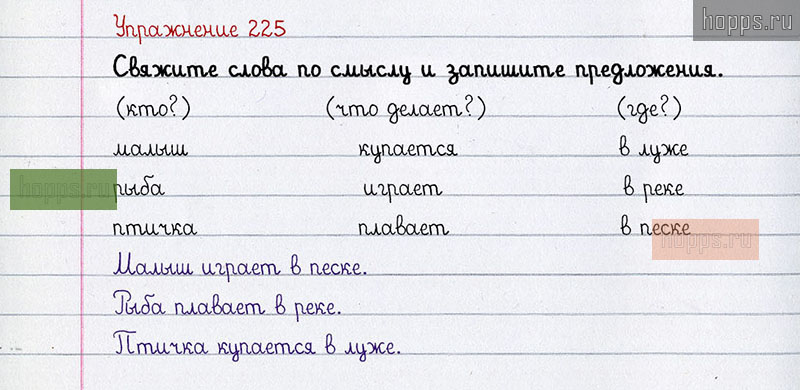 hopps.ru
Упражнение 225
Свяжите слова по смыслу и запишите предложения.
(кто?) (что делает?) (где?)
малыш купается в луже
hopps.ru
рыба играет в реке
птичка плавает в песке
hopps.ru
Малыш играет в песке.
Рыба плавает в реке.
Птичка купается в луже.